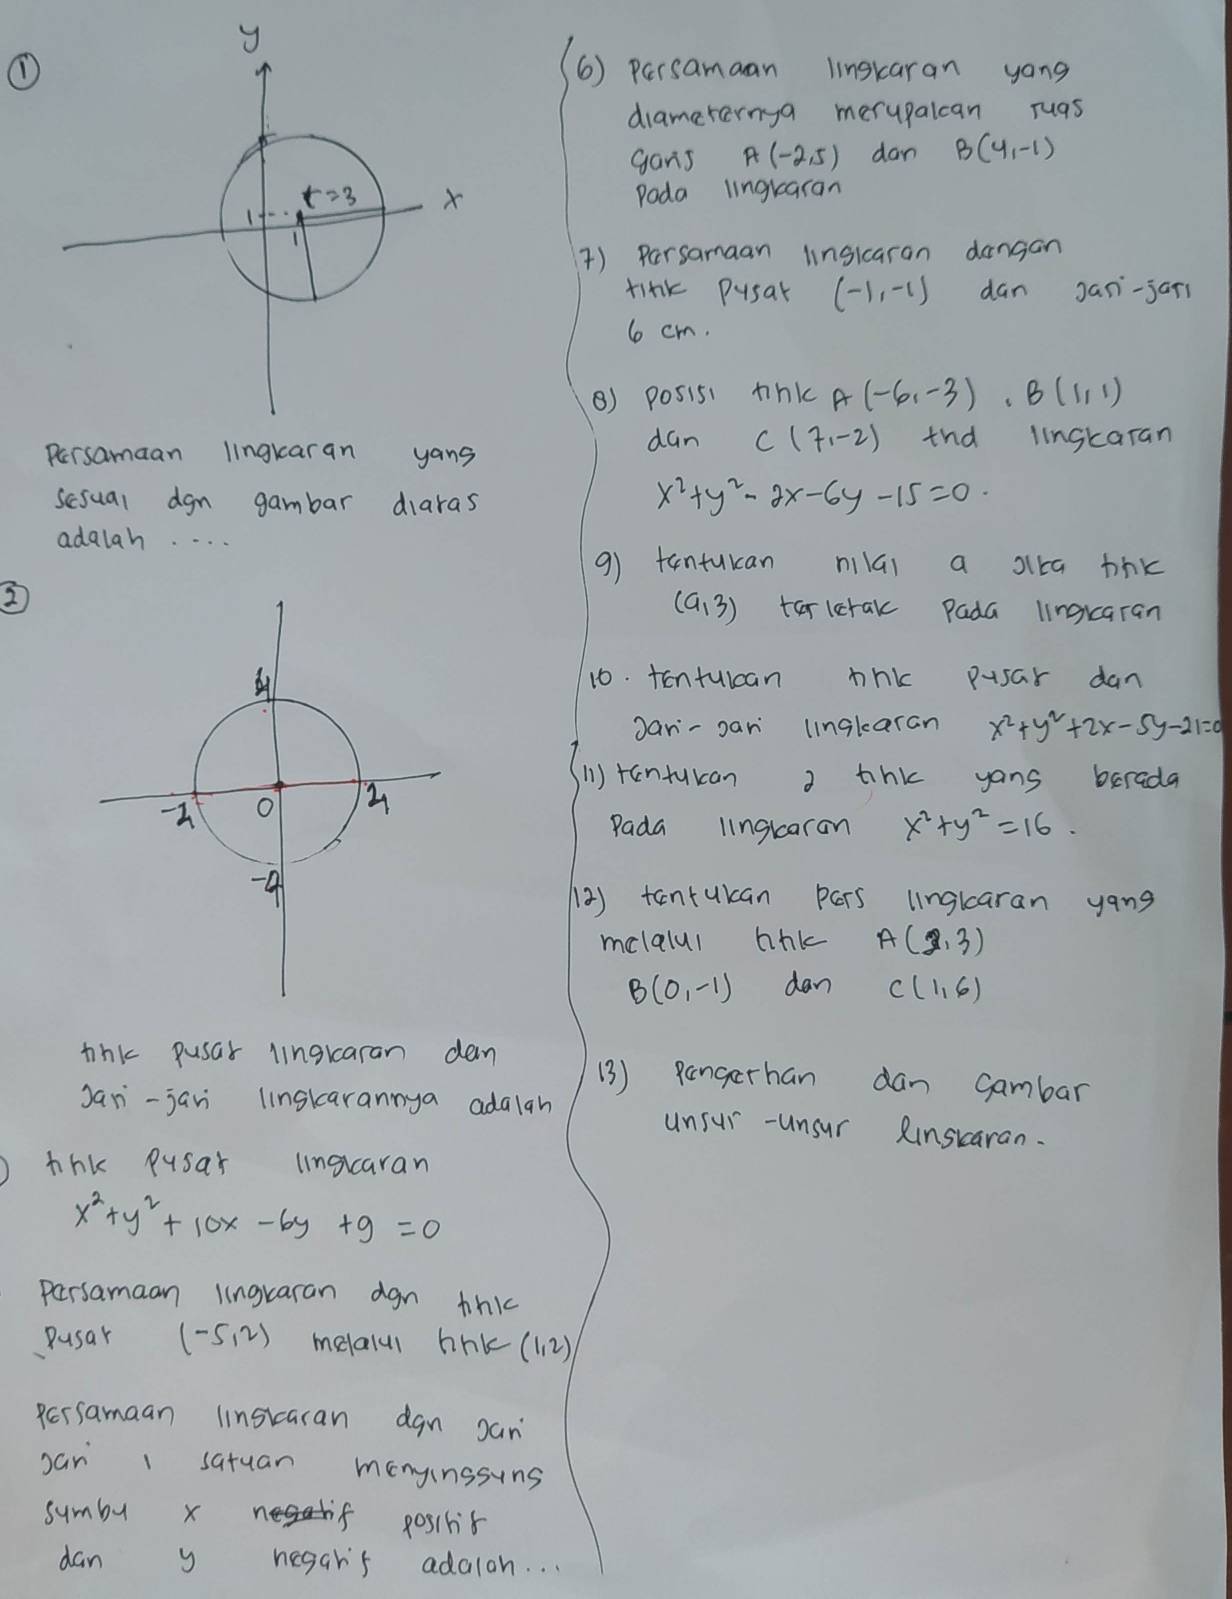 1
y
x
r=3
1
1
Persamaan lingkaran yang
sesuai dgn gambar diatas
adalah ....
2
4
-4
0
-4
titik pusat lingkaran dan
Jari-jari lingkarannya adalah
titik pusat lingkaran
x²+y²+10x-6y+9=0
Persamaan lingkaran dgn titik
pusat (-5,2) melalui titik (1,2)
Persamaan lingkaran dgn Jari
jari 1 satuan menyinggung
sumbu x negatif positif
dan y negatif adalah...
6) Persamaan lingkaran yang
diameternya merupakan ruas
garis A(-2,5) dan B(4,-1)
pada lingkaran
7) Persamaan lingkaran dengan
titik pusat (-1,-1) dan Jari-jari
6 cm.
8) posisi titik A(-6,-3), B(1,1)
dan C(7,-2) thd lingkaran
x²+y²-2x-6y-15=0.
9) tentukan nilai a Jika titik
(a,3) terletak pada lingkaran
10. tentukan titik pusat dan
Jari-Jari lingkaran x²+y²+2x-5y-21=0
11) tentukan 2 titik yang berada
pada lingkaran x²+y²=16.
12) tentukan pers lingkaran yang
melalui titik A(2,3)
B(0,-1) dan C(1,6)
13) Pengertian dan Gambar
unsur-unsur lingkaran.